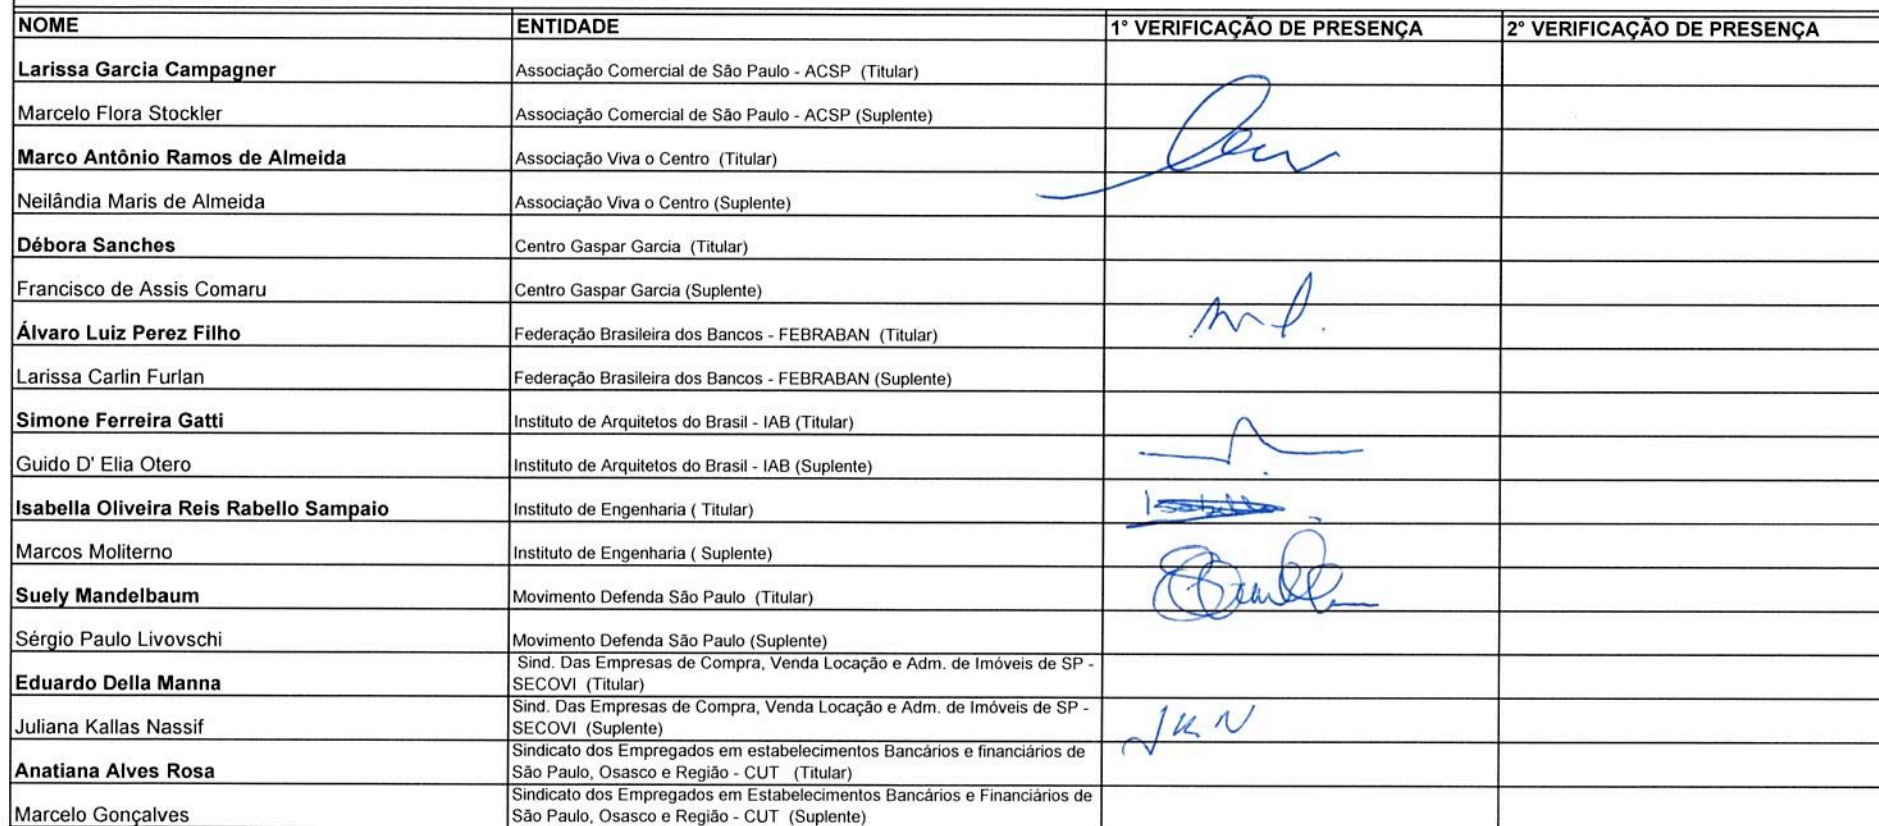 NOME ENTIDADE 1° VERIFICAÇÃO DE PRESENÇA 2° VERIFICAÇÃO DE PRESENÇA
Larissa Garcia Campagner Associação Comercial de São Paulo - ACSP (Titular)
Marcelo Flora Stockler Associação Comercial de São Paulo - ACSP (Suplente)
Marco Antônio Ramos de Almeida Associação Viva o Centro (Titular)
Neilândia Maris de Almeida Associação Viva o Centro (Suplente)
Débora Sanches Centro Gaspar Garcia (Titular)
Francisco de Assis Comaru Centro Gaspar Garcia (Suplente)
Álvaro Luiz Perez Filho Federação Brasileira dos Bancos - FEBRABAN (Titular)
Larissa Carlin Furlan Federação Brasileira dos Bancos - FEBRABAN (Suplente)
Simone Ferreira Gatti Instituto de Arquitetos do Brasil - IAB (Titular)
Guido D' Elia Otero Instituto de Arquitetos do Brasil - IAB (Suplente)
Isabella Oliveira Reis Rabello Sampaio Instituto de Engenharia ( Titular) Isabella
Marcos Moliterno Instituto de Engenharia ( Suplente)
Suely Mandelbaum Movimento Defenda São Paulo (Titular)
Sérgio Paulo Livovschi Movimento Defenda São Paulo (Suplente)
Sind. Das Empresas de Compra, Venda Locação e Adm. de Imóveis de SP -
Eduardo Della Manna SECOVI (Titular)
Sind. Das Empresas de Compra, Venda Locação e Adm. de Imóveis de SP -
Juliana Kallas Nassif SECOVI (Suplente) JKN
Sindicato dos Empregados em estabelecimentos Bancários e financiários de
Anatiana Alves Rosa São Paulo, Osasco e Região - CUT (Titular)
Sindicato dos Empregados em Estabelecimentos Bancários e Financiários de
Marcelo Gonçalves São Paulo, Osasco e Região - CUT (Suplente)